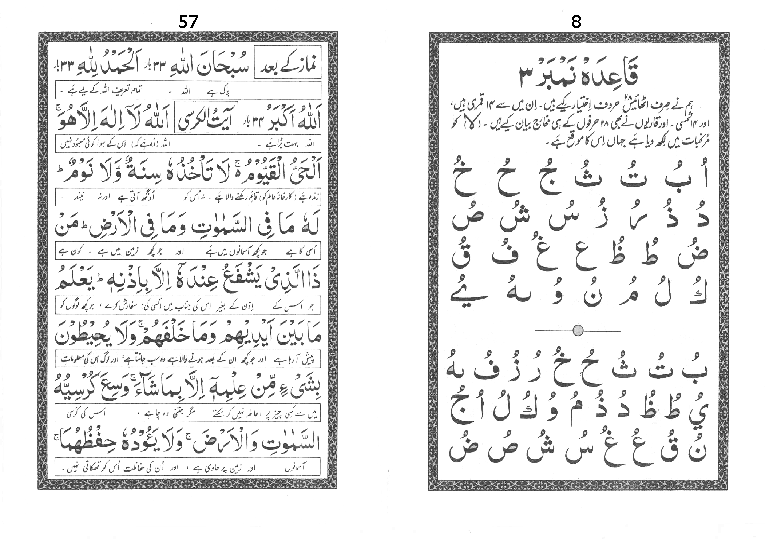 57
نماز کے بعد سُبْحَانَ اللّٰهِ ۳۳ بار اَلْحَمْدُ لِلّٰهِ ۳۳ بار
پاک ہے اللہ ۔ تمام تعریف اللہ کے لیے ہے ۔
اَللّٰهُ اَكْبَرُ ۳۴ بار آیت الکرسی اَللّٰهُ لَآ اِلٰهَ اِلَّا هُوَ ۚ
اللہ بہت بڑا ہے ۔ اللہ کے سوا کوئی معبود نہیں
اَلْحَيُّ الْقَيُّوْمُ ۚ لَا تَاْخُذُهٗ سِنَةٌ وَّلَا نَوْمٌ ؕ
زندہ ہے کارخانہ عالم کو قائم رکھنے والا ہے ۔ نہ جس کو اونگھ آتی ہے اور نہ نیند ۔
لَهٗ مَا فِى السَّمٰوٰتِ وَمَا فِى الْاَرْضِ ؕ مَنْ
اسی کا ہے جو کچھ آسمانوں میں ہے اور جو کچھ زمین میں ہے ۔ کون ہے
ذَا الَّذِىْ يَشْفَعُ عِنْدَهٗٓ اِلَّا بِاِذْنِهٖ ؕ يَعْلَمُ
جو اس کے اذن کے بغیر اس کی جناب میں کسی کی سفارش کرے ، جو کچھ لوگوں کو
مَا بَيْنَ اَيْدِيْهِمْ وَمَا خَلْفَهُمْ ۚ وَلَا يُحِيْطُوْنَ
پیش آ رہا ہے اور جو کچھ ان کے بعد ہونے والا ہے وہ سب جانتا ہے اور لوگ اس کی معلومات
بِشَىْءٍ مِّنْ عِلْمِهٖٓ اِلَّا بِمَا شَآءَ ۚ وَسِعَ كُرْسِيُّهُ
میں سے کسی چیز پر احاطہ نہیں کر سکتے مگر جتنی وہ چاہے ، اس کی کرسی
السَّمٰوٰتِ وَالْاَرْضَ ۚ وَلَا يَـــُٔوْدُهٗ حِفْظُهُمَا ۚ
آسمانوں اور زمین پر حاوی ہے ، اور ان کی حفاظت اس کو تھکاتی نہیں ۔
8
قاعدہ نمبر ۳
ہم نے صرف اٹھائیس حروف اختیار کیے ہیں ۔ ان میں سے ۱۴ قمری ہیں،
اور ۱۴ شمسی ۔ اور قاریوں نے بھی ۲۸ حرفوں کے ہی مخارج بیان کیے ہیں ۔ "لا" کو
مرکبات میں لکھ دیا ہے جہاں اس کا موقع ہے ۔
اُ بُ تُ ثُ جُ حُ خُ
دُ ذُ رُ زُ سُ شُ صُ
ضُ طُ ظُ عُ غُ فُ قُ
كُ لُ مُ نُ وُ هُ يُ
بُ تُ ثُ حُ خُ رُ زُ فُ هُ
يُ طُ ظُ دُ ذُ مُ وُ كُ لُ اُ جُ
نُ قُ عُ غُ سُ شُ صُ ضُ